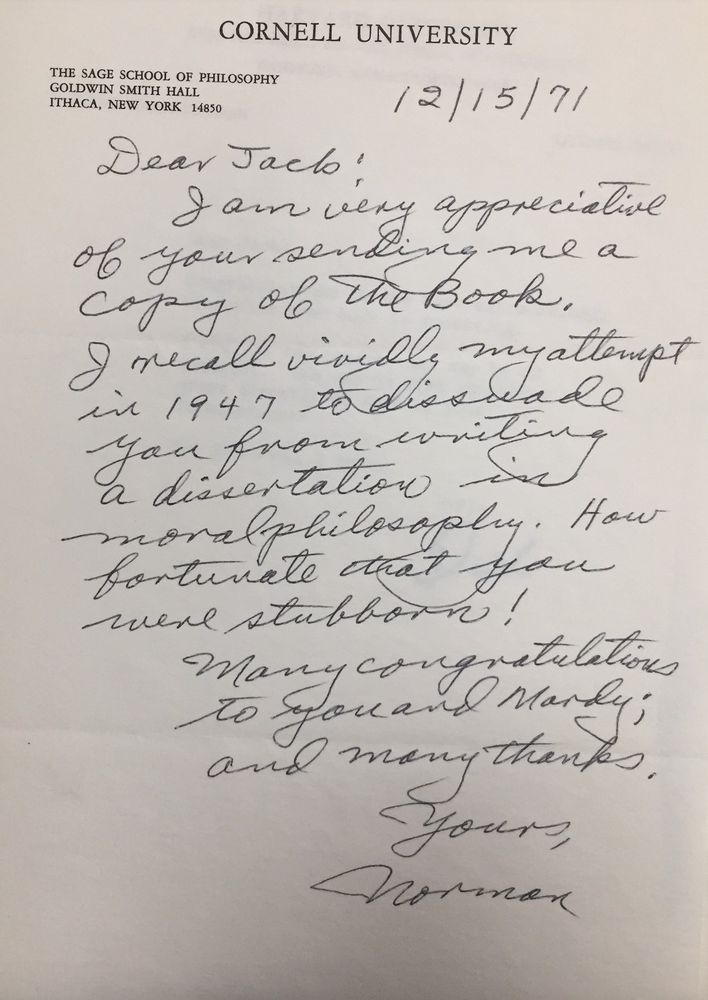 CORNELL UNIVERSITY
THE SAGE SCHOOL OF PHILOSOPHY
GOLDWIN SMITH HALL
ITHACA, NEW YORK 14850
12/15/71
Dear Jack:
I am very appreciative
of your sending me a
copy of The Book.
I recall vividly my attempt
in 1947 to dissuade
you from writing
a dissertation in
moral philosophy. How
fortunate that you
were stubborn!
Many congratulations
to you and Mardy;
and many thanks.
Yours,
Norman